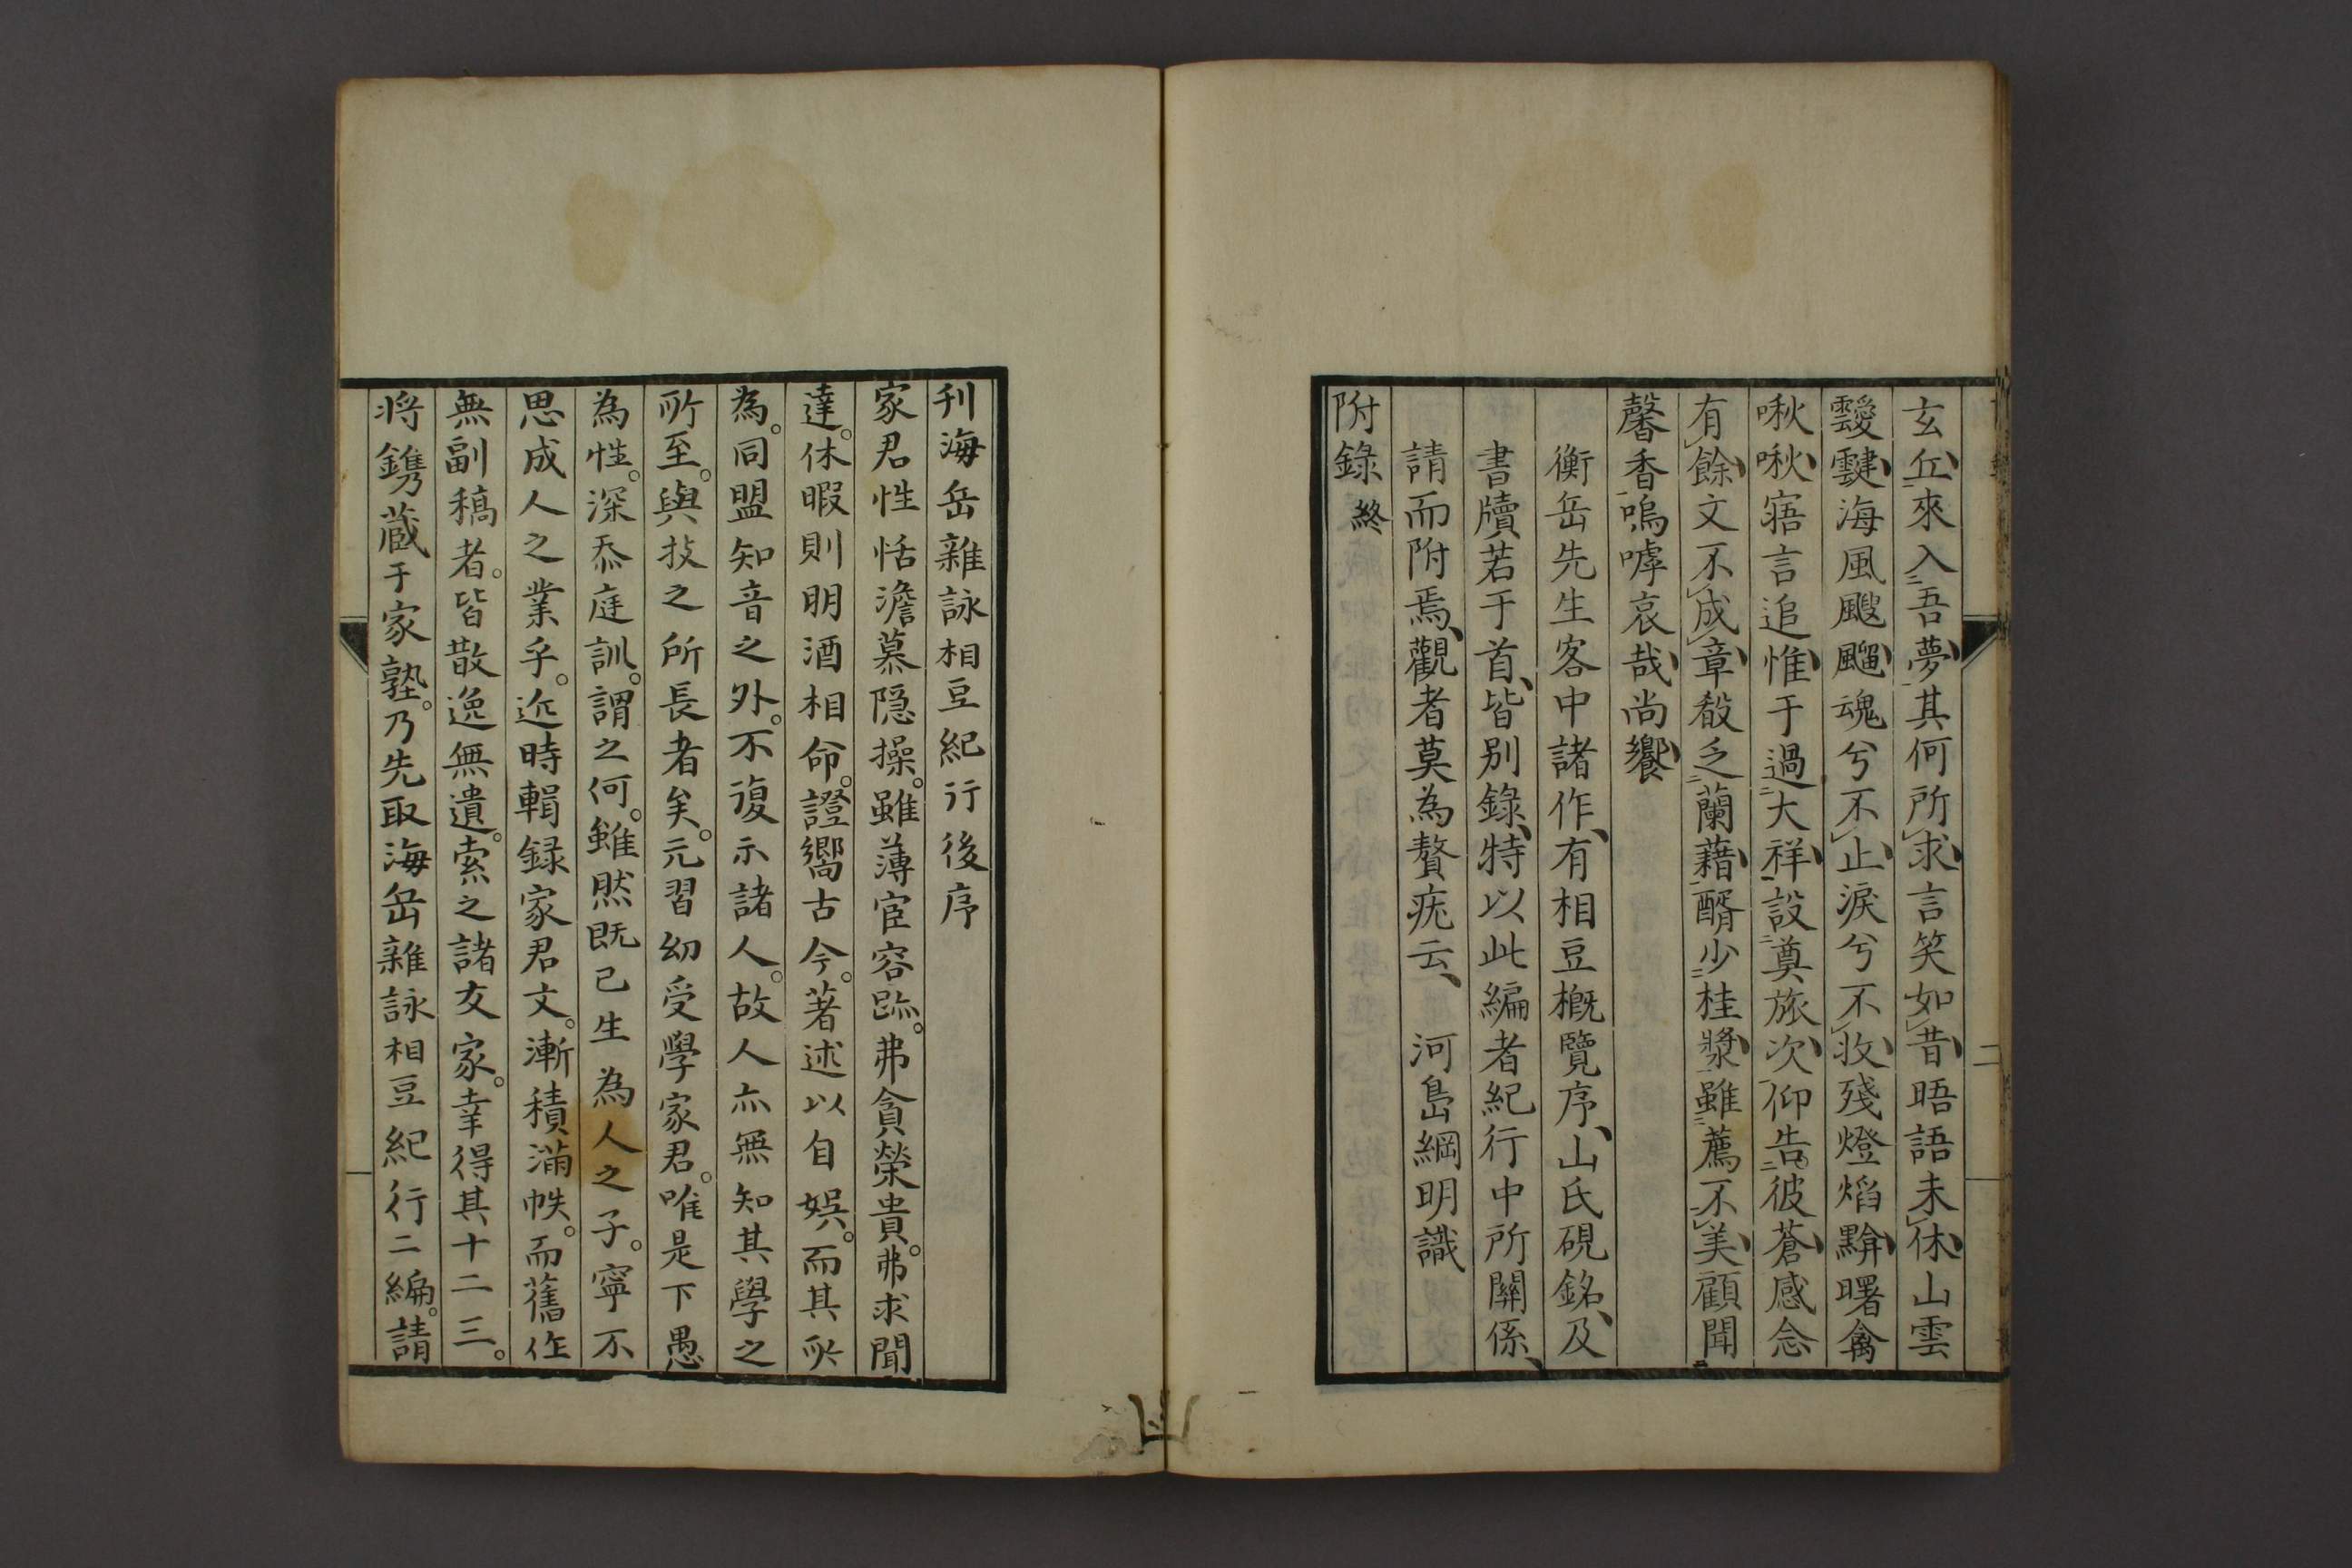 玄丘、來入吾夢、其何所求、言笑如昔、晤語未休、山雲
靉靆、海風颼飀、魂兮不止、淚兮不收、殘燈焰黯、曙禽
啾啾、寤言追惟、于過大祥、設奠旅次、仰告彼蒼、感念
有餘、文不成章、殽乏蘭藉、醑少桂漿、雖薦不美、顧聞
馨香、嗚嘑哀哉、尚饗、
衡岳先生客中諸作、有相豆概覽序、山氏硯銘、及
書牘若于首、皆別錄、特以此編者紀行中所關係、
請而附焉、觀者莫為贅疣云、 河島綱明識
附錄 終
二
刊海岳雜詠相豆紀行後序
家君性恬澹慕隱操。雖薄宦容跡。弗貪榮貴。弗求聞
達。休暇則明酒相命。證嚮古今。著述以自娯。而其所
為。同盟知音之外。不復示諸人。故人亦無知其學之
所至。與技之所長者矣。元習幼受學家君。唯是下愚
為性。深忝庭訓。謂之何。雖然既已生為人之子。寧不
思成人之業乎。近時輯録家君文。漸積滿帙。而舊作
無副稿者。皆散逸無遺。索之諸友家。幸得其十二三。
将鐫蔵于家塾。乃先取海岳雜詠相豆紀行二編。請